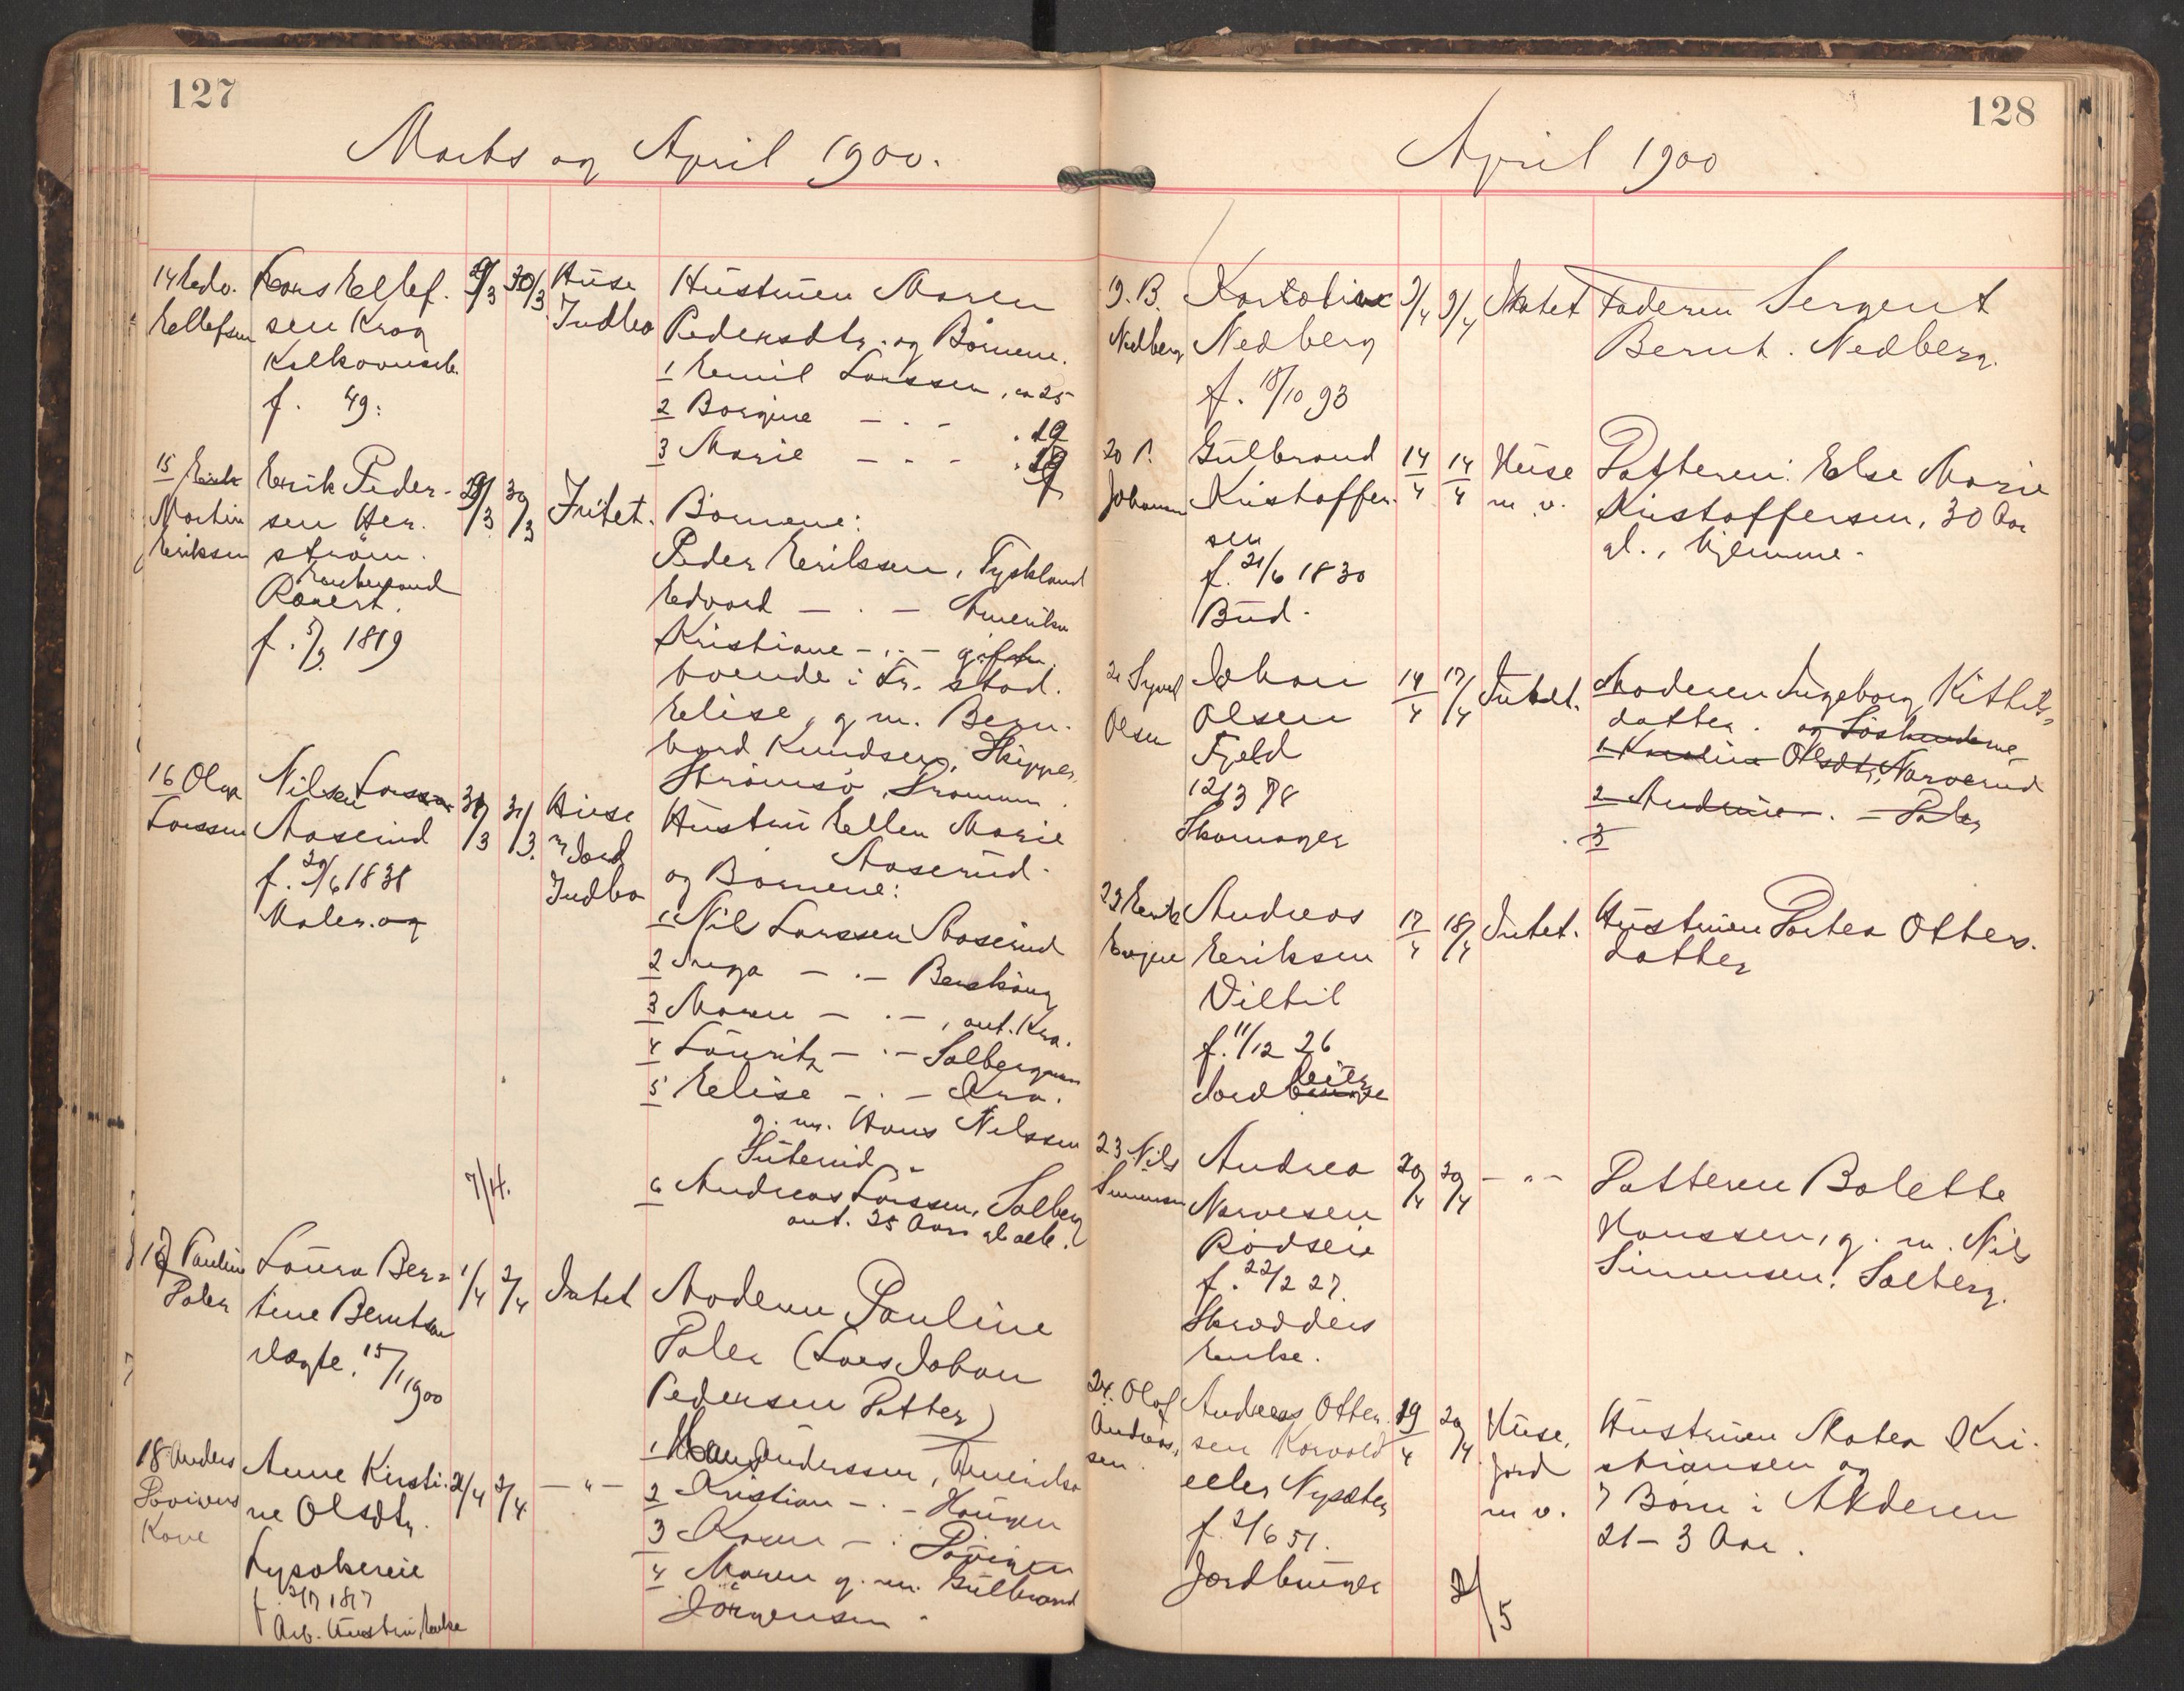 127
Marts og April 1900.
14 Edv. Ellefsen
Hans Ellef-
sen Krog
f. 49:
29/3 30/3
Huse
Indbo
Hustruen Maren
Pedersdtr. og Børnene.
1 Emil Larssen, ca 25
2 Borgine — . — . 19
3 Marie — . — .
15 Martin Eriksen
Erik Peder-
sen Her-
strøm.
Enkemand
f. 5/3 1819
29/3 30/3
Intet.
Børnene:
Peder Erikssen, Tyskland
Edvard — . — Amerika
Kristiane — . — gift
boende i Fr. stad.
Elise, g. m. Bern-
hard Knudsen, Skipper
Strømsø, Drammen.
16 Olga Larssen
Nils Larssen
Aaserud
f. 29/6 1838
Maler. og
31/3 31/3.
Huse
Jord
Indbo
Hustru Ellen Marie
Aaserud.
og Børnene:
1 Nils Larssen Aaserud
2 Inga — . — Berskaug
3 Maren — . — , ant. Kra.
4 Lauritz — . — Solbergmoen
5 Elise — . — Kra.
g. m. Hans Nilssen
Suterud
6 Andreas Larssen, Solberg
ant. 25 Aar alle.
7/4.
17 Pauline Paler
Laura Ber-
tine Berntsen
15/1 1900
1/4 2/4
Intet
Moderen Pauline
Paler (Lars Johan
Pedersen Datter)
18 Anders Povisens Kone
Anne Kirsti-
ne Olsdtr.
Lysakereie
Arb. Hustru, Enke
2/4 2/4
— " —
1 Hans Anderssen, Amerika
2 Kristian — . — Haugen
3 Karen — .
4 Maren g. m. Gulbrand
Jørgensen.
128
April 1900
19. B. Nedberg
Nedberg
f. 18/10 93
9/4 9/4
Intet
Faderen Sergent
Bernt. Nedberg.
20 P. Johansen
Gulbrand
Kristoffer-
sen
f. 21/6 1830
Bud.
14/4 14/4
Huse
m. v.
Datteren: Else Marie
Kristoffersen, 30 Aar
gl., hjemme.
21 Sigurd Olsen
Johan
Olsen
Fjeld
12/3 78
Skomager
14/4 17/4
Intet.
Moderen Ingeborg Kittils-
datter. og Søskendene
1 Karoline Olsdtr, Narverud
2 Andrine — . — Paler
3
22 Erik
Andreas
Eriksen
Viltil
f. 11/12 26
Jordbruger
17/4 18/4
Intet.
Hustruen Dortea Otters-
datter
23 Nils Simensen
Andrea
Narvesen
Rødseie
f. 22/2 27.
Skrædders
Enke.
20/4 20/4
— " —
Datteren Bolette
Hanssen, g. m. Nils
Simensen, Solberg.
24. Olaf Andreas-
sen.
Andreas Otter-
sen Korvald
eller Nysæter
f. 2/6 51.
Jordbruger
19/4 20/4.
Huse,
Jord
m v.
Hustruen Matea Kri-
stiansen og
7 Børn i Alderen
21 - 3 Aar.
2/5